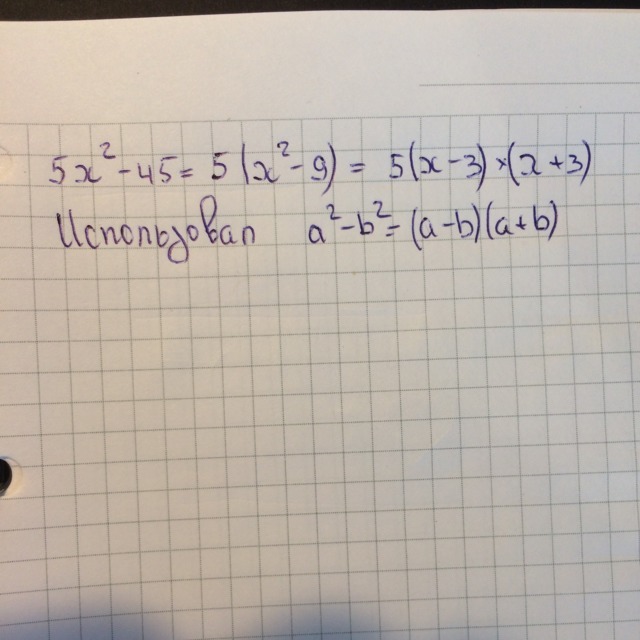 5x² - 45 = 5(x² - 9) = 5(x - 3) × (x + 3)
Использовал a² - b² = (a - b)(a + b)